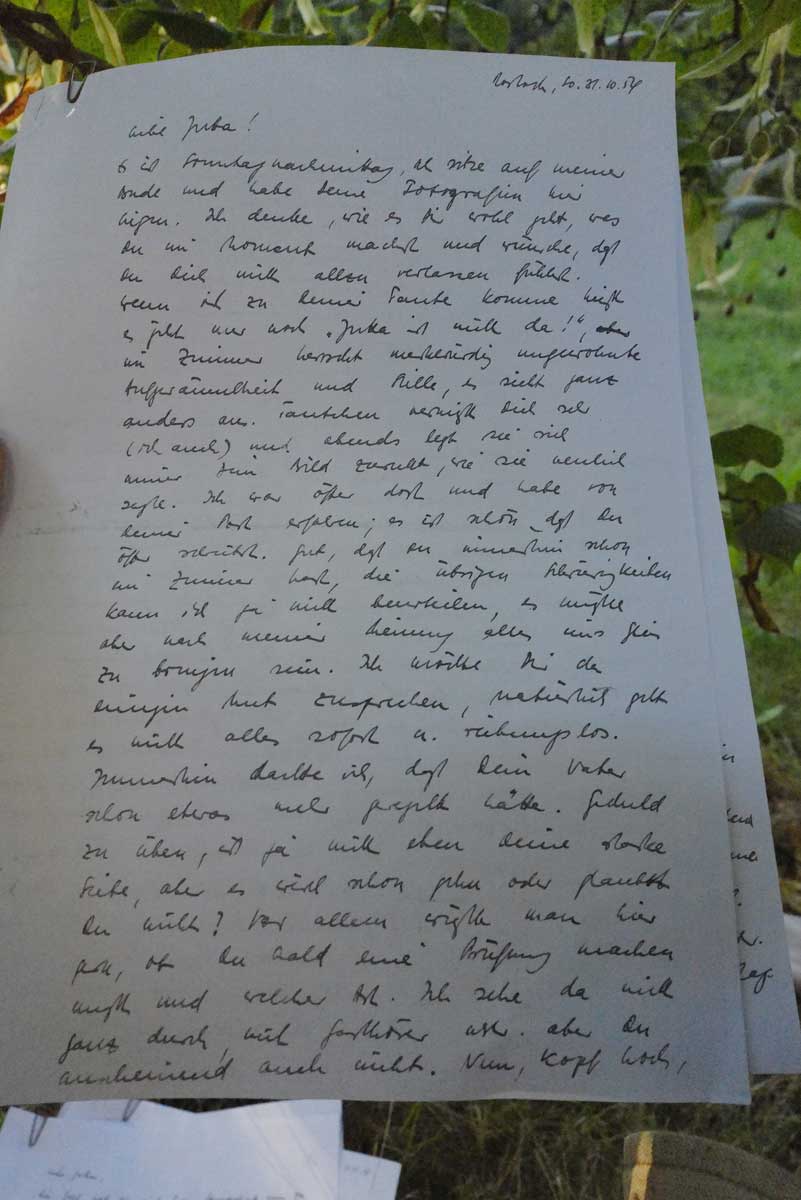 Rostock, 31.10.54
Liebe Jutta!
Es ist Sonntagnachmittag, ich sitze auf meiner
Bude und habe Deine Fotografien hier
liegen. Ich denke, wie es Dir wohl geht, was
Du im Moment machst und wünsche, daß
Du Dich nicht allzu verlassen fühlst.
Wenn ich zu Deiner Tante komme heißt
es jetzt nur noch „Jutta ist nicht da!", aber
im Zimmer herrscht merkwürdig ungewohnte
Aufgeräumtheit und Stille, es sieht ganz
anders aus. Tantchen vermißt Dich sehr
(ich auch) und abends legt sie sich
immer Dein Bild zurecht, wie sie neulich
sagte. Ich war öfter dort und habe von
Deiner Post erfahren; es ist schön, daß Du
öfter schreibst. Gut, daß Du immerhin schon
ein Zimmer hast, die übrigen Schwierigkeiten
kann ich ja nicht beurteilen, es müßte
aber nach meiner Meinung alles ins
zu bringen sein. Ich möchte Dir da
einigen Mut zusprechen, natürlich geht
es nicht alles sofort u. reibungslos.
Immerhin dachte ich, daß Dein Vater
schon etwas mehr geregelt hätte. Geduld
zu üben, ist ja nicht eben Deine starke
Seite, aber es wird schon gehn oder glaubst
Du nicht? Vor allem wüßte man hier
gern, ob Du bald eine Prüfung machen
mußt und welcher Art. Ich sehe da nicht
ganz durch, mit Gasthörer usw. aber Du
anscheinend auch nicht. Nun, Kopf hoch,